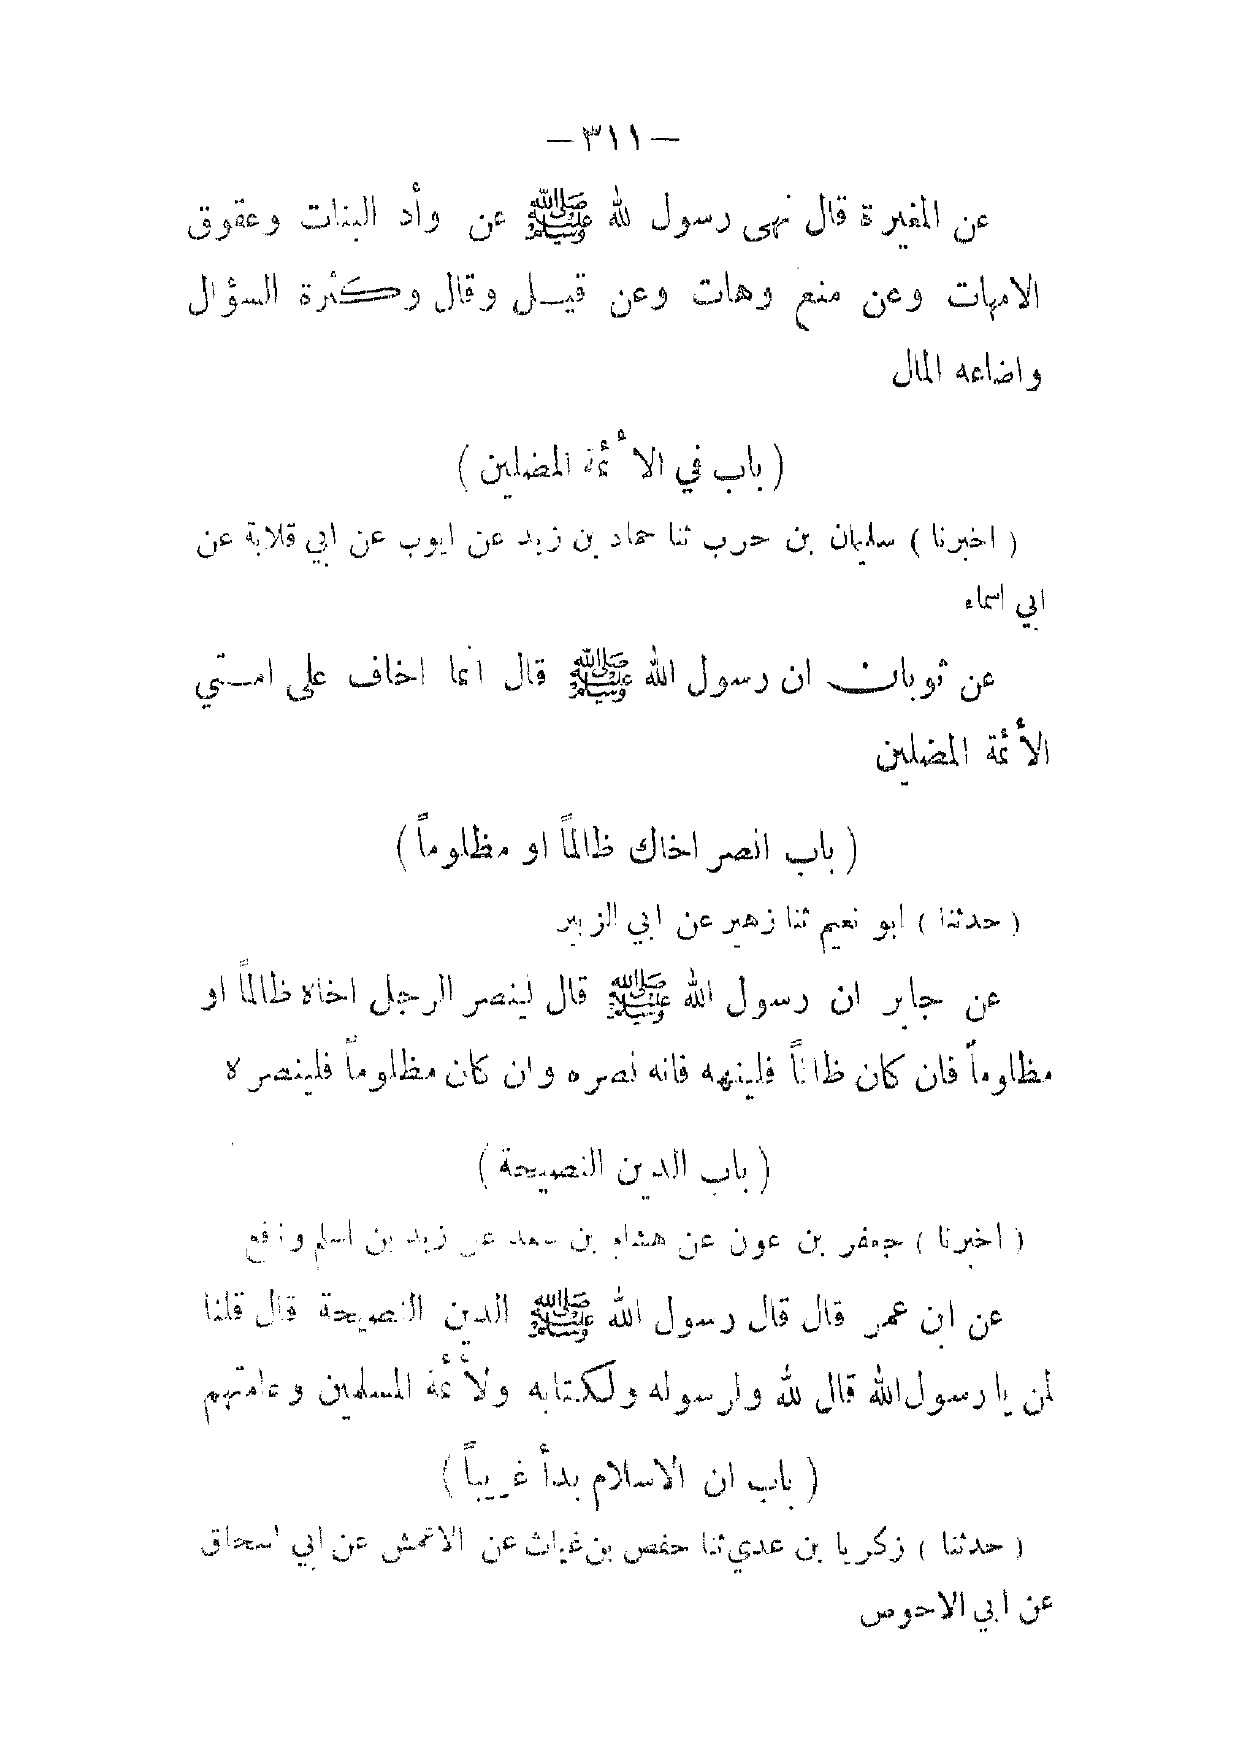 — ٣١١ —
عن المغيرة قال نهى رسول لله ﷺ عن وأد البنات وعقوق
الامهات وعن منع وهات وعن قيل وقال وكثرة السؤال
واضاعه المال
( باب في الأئمة المضلين )
( اخبرنا ) سليمان بن حرب ثنا حماد بن زيد عن ايوب عن ابي قلابة عن
ابي اسماء
عن ثوبان ان رسول الله ﷺ قال انما اخاف على امتي
الأئمة المضلين
( باب انصر اخاك ظالماً او مظلوماً )
( حدثنا ) ابو نعيم ثنا زهير عن ابي الزبير
عن جابر ان رسول الله ﷺ قال لينصر الرجل اخاه ظالماً او
مظلوماً فان كان ظالماً فلينهه فانه نصره وان كان مظلوماً فلينصره
( باب الدين النصيحة )
( اخبرنا ) جعفر بن عون عن هشام بن سعد عن زيد بن اسلم ونافع
عن ابن عمر قال قال رسول الله ﷺ الدين النصيحة قال قلنا
لمن يا رسول الله قال لله ولرسوله ولكتابه ولأئمة المسلمين وعامتهم
( باب ان الاسلام بدأ غريباً )
( حدثنا ) زكريا بن عدي ثنا حفص بن غياث عن الاعمش عن ابي اسحاق
عن ابي الاحوص